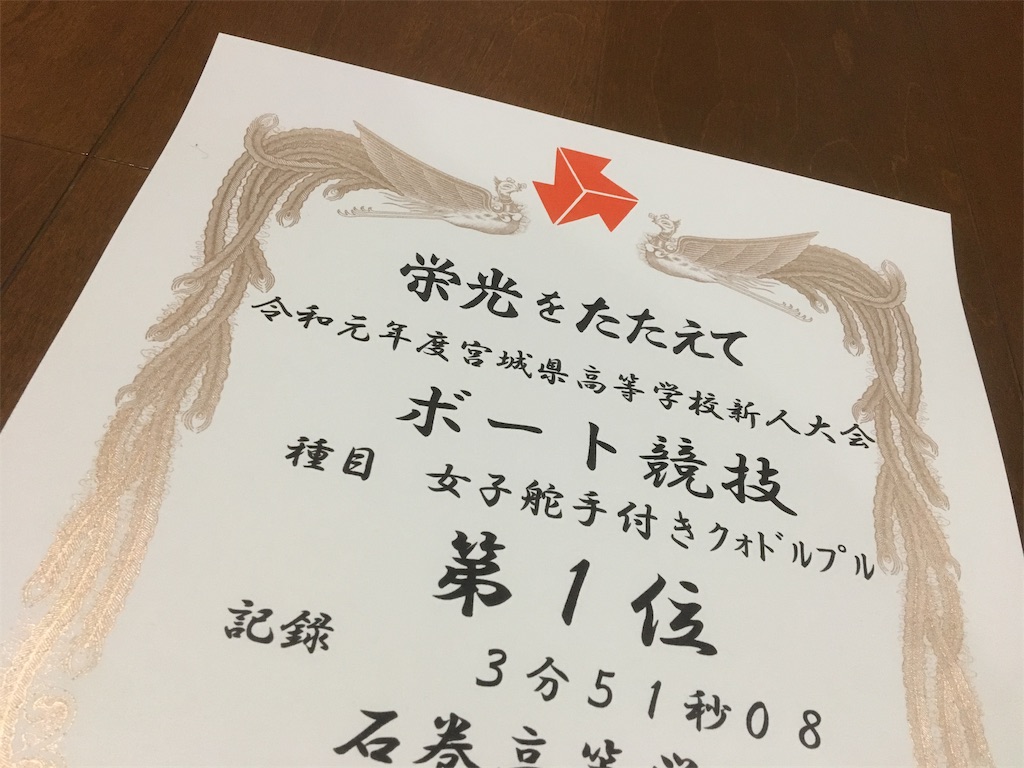 栄光をたたえて
令和元年度宮城県高等学校新人大会
ボート競技
種目 女子舵手付きクォドルプル
第1位
記録 3分51秒08
石巻高等学